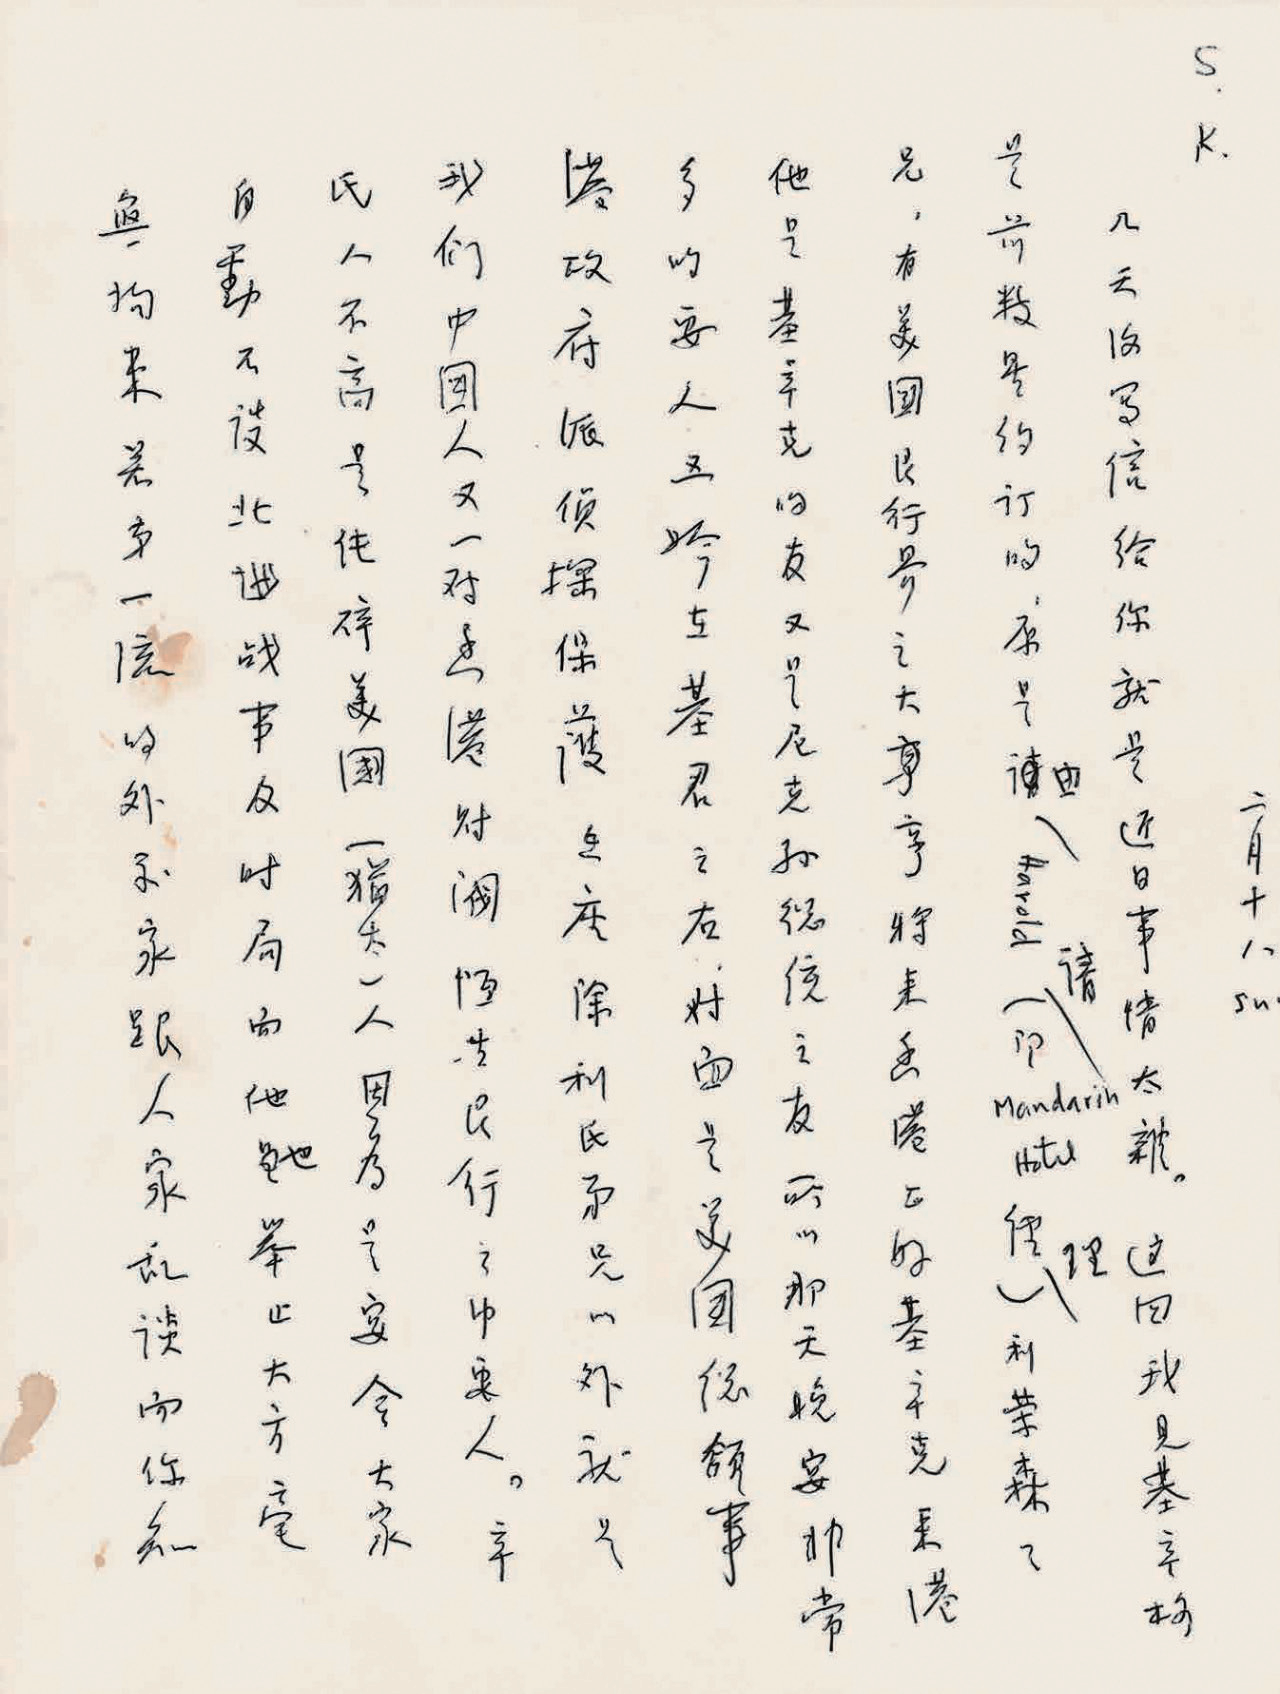 S. K.
二月十八 sun
几天没写信给你就是近日事情太雜。这回我見基辛格
是前数星期约订的，原是由Harold（即請Mandarin Hotel 經理）利荣森
兄，有美國艮行界之大亨将来香港正好基辛克来港
他是基辛克的友又是尼克孙總統之友所以那天晚宴非常
多的要人五吟在基君之右，对面是美国總領事
港政府派侦探保護 在座除利氏弟兄以外就是
我们中國人又一对香港财阀恒生艮行之中要人。辛
氏人不高是伅碎美國（猶太）人因为是宴会大家
自動不談北越战事及时局而他她举止大方毫
無拘束若第一流的外交家跟人家乱谈而你知